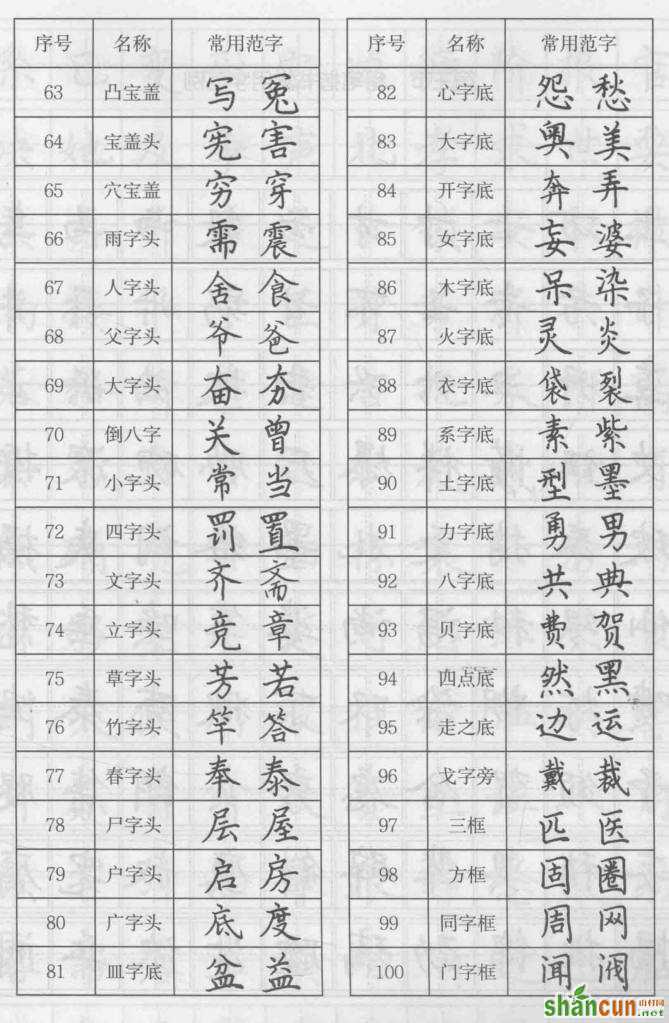 序号 名称 常用范字
63 凸宝盖 写 冤
64 宝盖头 宪 害
65 穴宝盖 穷 穿
66 雨字头 需 震
67 人字头 舍 食
68 父字头 爷 爸
69 大字头 奋 夯
70 倒八字 关 曾
71 小字头 常 当
72 四字头 罚 置
73 文字头 齐 斋
74 立字头 竞 章
75 草字头 芳 若
76 竹字头 竿 答
77 春字头 奉 泰
78 尸字头 层 屋
79 户字头 启 房
80 广字头 底 度
81 皿字底 盆 益
序号 名称 常用范字
82 心字底 怨 愁
83 大字底 奥 美
84 开字底 奔 弄
85 女字底 妄 婆
86 木字底 呆 染
87 火字底 灵 炎
88 衣字底 袋 裂
89 系字底 素 紫
90 土字底 型 墨
91 力字底 勇 男
92 八字底 共 典
93 贝字底 费 贺
94 四点底 然 黑
95 走之底 边 运
96 戈字旁 戴 裁
97 三框 匹 医
98 方框 固 圈
99 同字框 周 网
100 门字框 闻 阀
shancun 山村网
.net